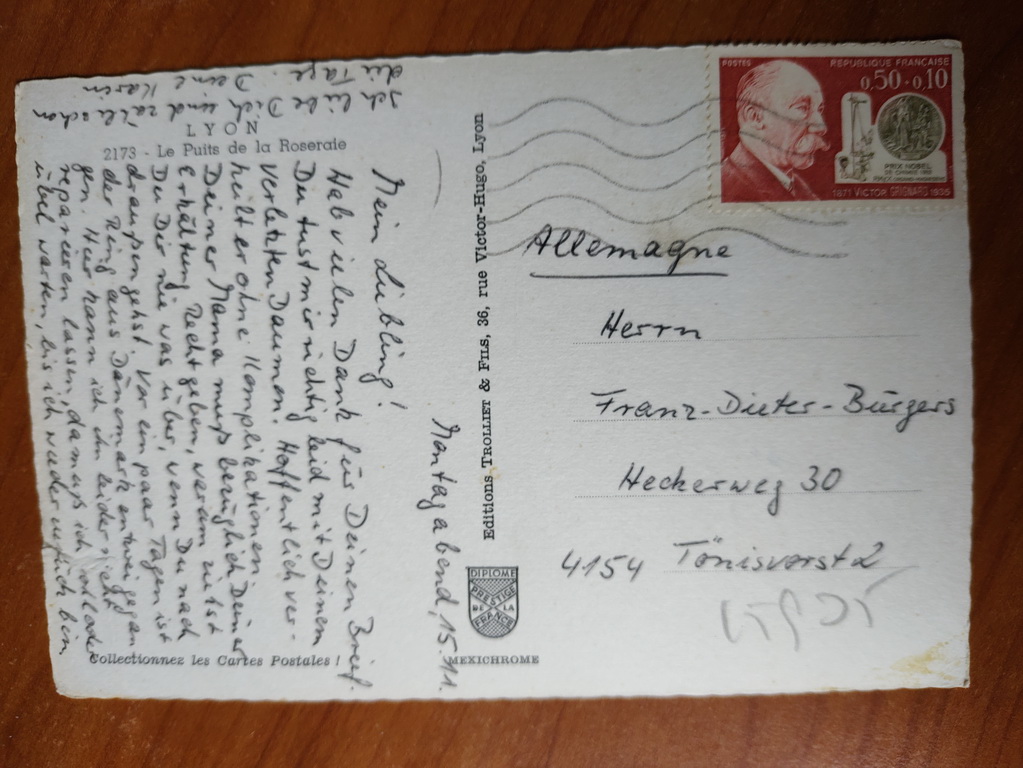 LYON
2173 - Le Puits de la Roseraie
Montagabend, 15.11.
Mein Liebling!
Hab vielen Dank für Deinen Brief.
Du tust mir richtig leid mit Deinem
verletzten Daumen. Hoffentlich ver-
heilt er ohne Komplikationen.
Deiner Mama muß bezüglich Deiner
Erkältung Recht geben, warum ziehst
Du Dir nie was über, wenn Du nach
draußen gehst. Vor ein paar Tagen ist
der Ring aus Dänemark entzwei gegan
gen. Hier kann ich ihn leider nicht
reparieren lassen, damuß ich wohl oder
übel warten, bis ich wieder
bin.
Ich liebe Dich und zähle schon
die Tage. Deine Karin
Editions TROLLIET & FILS, 36, rue Victor-Hugo, Lyon
DIPLOME
PRESTIGE
DE LA
FRANCE
MEXICHROME
Collectionnez les Cartes Postales !
POSTES RÉPUBLIQUE FRANÇAISE
0,50+0,10
PRIX NOBEL
DE CHIMIE 1912
1871 VICTOR GRIGNARD 1935
Allemagne
Herrn
Franz-Dieter-Bürgers
Heckerweg 30
4154 Tönisvorst 2